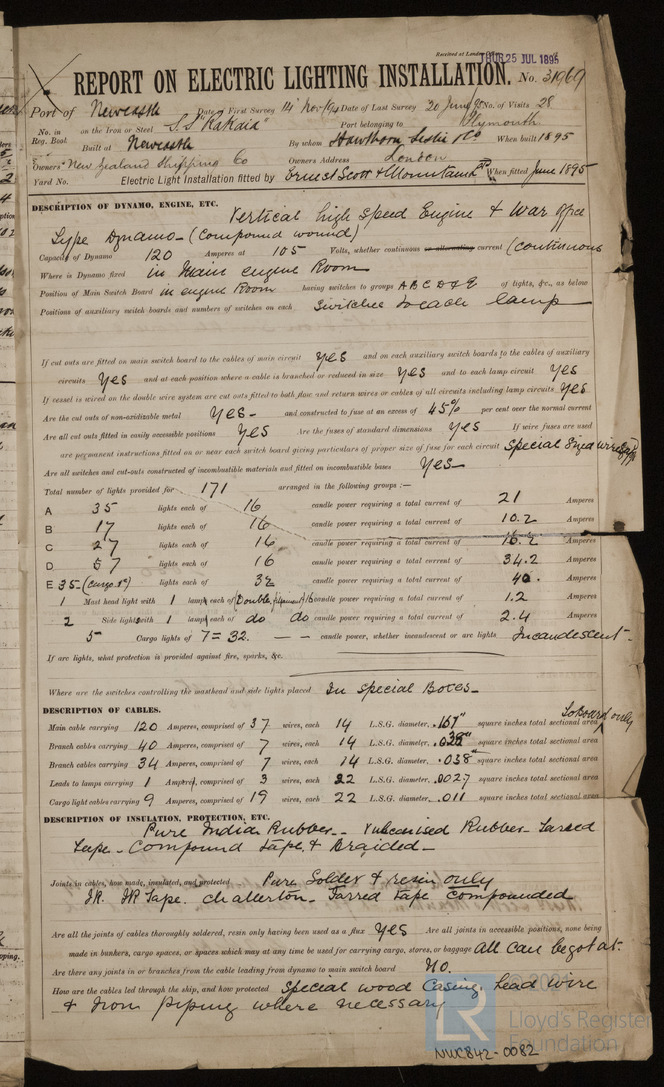 Received at London
THUR 25 JUL 1895
REPORT ON ELECTRIC LIGHTING INSTALLATION. No. 31969
Port of Newcastle Date of First Survey 14 Nov/94 Date of Last Survey 20 June/95 No. of Visits 28
No. in Reg. Book on the Iron or Steel S.S "Rakaia" Port belonging to Plymouth
Built at Newcastle By whom Hawthorn Leslie & Co When built 1895
Owners New Zealand Shipping Co Owners Address London
Yard No. Electric Light Installation fitted by Ernest Scott & Mountain Ltd When fitted June 1895
DESCRIPTION OF DYNAMO, ENGINE, ETC.
Vertical high speed Engine & War Office
Type Dynamo - (Compound wound)
Capacity of Dynamo 120 Amperes at 105 Volts, whether continuous or alternating current (continuous
Where is Dynamo fixed in Main engine Room
Position of Main Switch Board in engine Room having switches to groups A B C D & E of lights, &c., as below
Positions of auxiliary switch boards and numbers of switches on each Switches to each lamp
If cut outs are fitted on main switch board to the cables of main circuit yes and on each auxiliary switch boards to the cables of auxiliary
circuits yes and at each position where a cable is branched or reduced in size yes and to each lamp circuit yes
If vessel is wired on the double wire system are cut outs fitted to both flow and return wires or cables of all circuits including lamp circuits yes
Are the cut outs of non-oxidizable metal yes - and constructed to fuse at an excess of 45% per cent over the normal current
Are all cut outs fitted in easily accessible positions yes Are the fuses of standard dimensions yes If wire fuses are used
are permanent instructions fitted on or near each switch board giving particulars of proper size of fuse for each circuit Special Sized wire
Are all switches and cut-outs constructed of incombustible materials and fitted on incombustible bases yes -
Total number of lights provided for 171 arranged in the following groups :—
A 35 lights each of 16 candle power requiring a total current of 21 Amperes
B 17 lights each of 16 candle power requiring a total current of 10.2 Amperes
C 27 lights each of 16 candle power requiring a total current of 16.2 Amperes
D 57 lights each of 16 candle power requiring a total current of 34.2 Amperes
E 35 - (Cargo 1º) lights each of 32 candle power requiring a total current of 40. Amperes
1 Mast head light with 1 lamp each of (Double filament) 16 candle power requiring a total current of 1.2 Amperes
2 Side lights with 1 lamp each of do do candle power requiring a total current of 2.4 Amperes
5 - Cargo lights of 7 = 32. — — candle power, whether incandescent or arc lights Incandescent -
If arc lights, what protection is provided against fire, sparks, &c.
Where are the switches controlling the masthead and side lights placed In special Boxes -
DESCRIPTION OF CABLES. To Board only
Main cable carrying 120 Amperes, comprised of 37 wires, each 14 L.S.G. diameter, .167" square inches total sectional area
Branch cables carrying 40 Amperes, comprised of 7 wires, each 14 L.S.G. diameter, .038" square inches total sectional area
Branch cables carrying 34 Amperes, comprised of 7 wires, each 14 L.S.G. diameter, .038" square inches total sectional area
Leads to lamps carrying 1 Amperes, comprised of 3 wires, each 22 L.S.G. diameter, .0027 square inches total sectional area
Cargo light cables carrying 9 Amperes, comprised of 19 wires, each 22 L.S.G. diameter, .011 square inches total sectional area
DESCRIPTION OF INSULATION, PROTECTION, ETC.
Pure India Rubber - Vulcanised Rubber - Tarred
Tape - Compound Tape & Braided -
Joints in cables, how made, insulated, and protected Pure Solder & resin only
I.R. I.R Tape. Chatterton - Tarred Tape compounded
Are all the joints of cables thoroughly soldered, resin only having been used as a flux yes Are all joints in accessible positions, none being
made in bunkers, cargo spaces, or spaces which may at any time be used for carrying cargo, stores, or baggage all can be got at.
Are there any joints in or branches from the cable leading from dynamo to main switch board No.
How are the cables led through the ship, and how protected special wood Casing, Lead wire
& Iron piping where necessary
© 202
LR
Lloyd's Register
Foundation
NWC842-0082